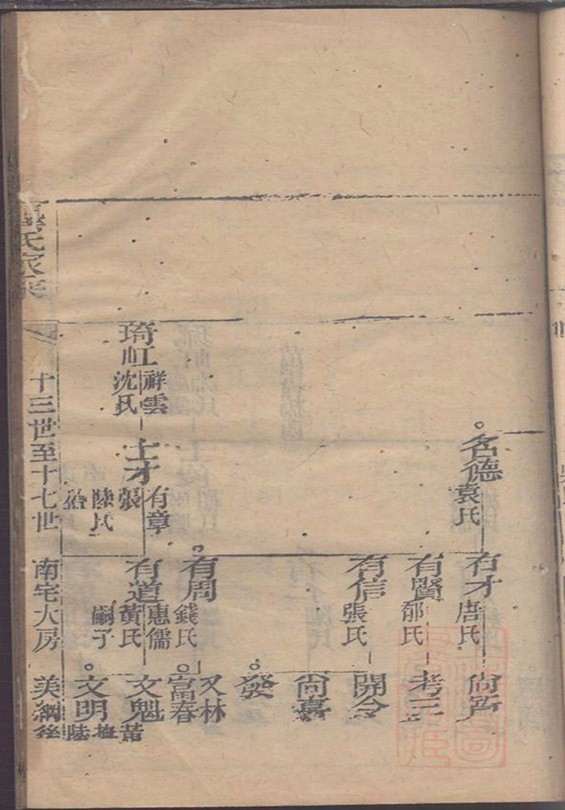 名德
袁氏
有才
唐氏
有賢
郁氏
考三
有信
張氏
開令
尚嘉
發
有周
錢氏
又林
富春
琦虹
祥雲
沈氏
士才
有章
張
陸氏
有道
惠儒
黃氏
嗣子
文魁
文明
陸
氏家乘
十三世至十七世
南宅大房
美綱